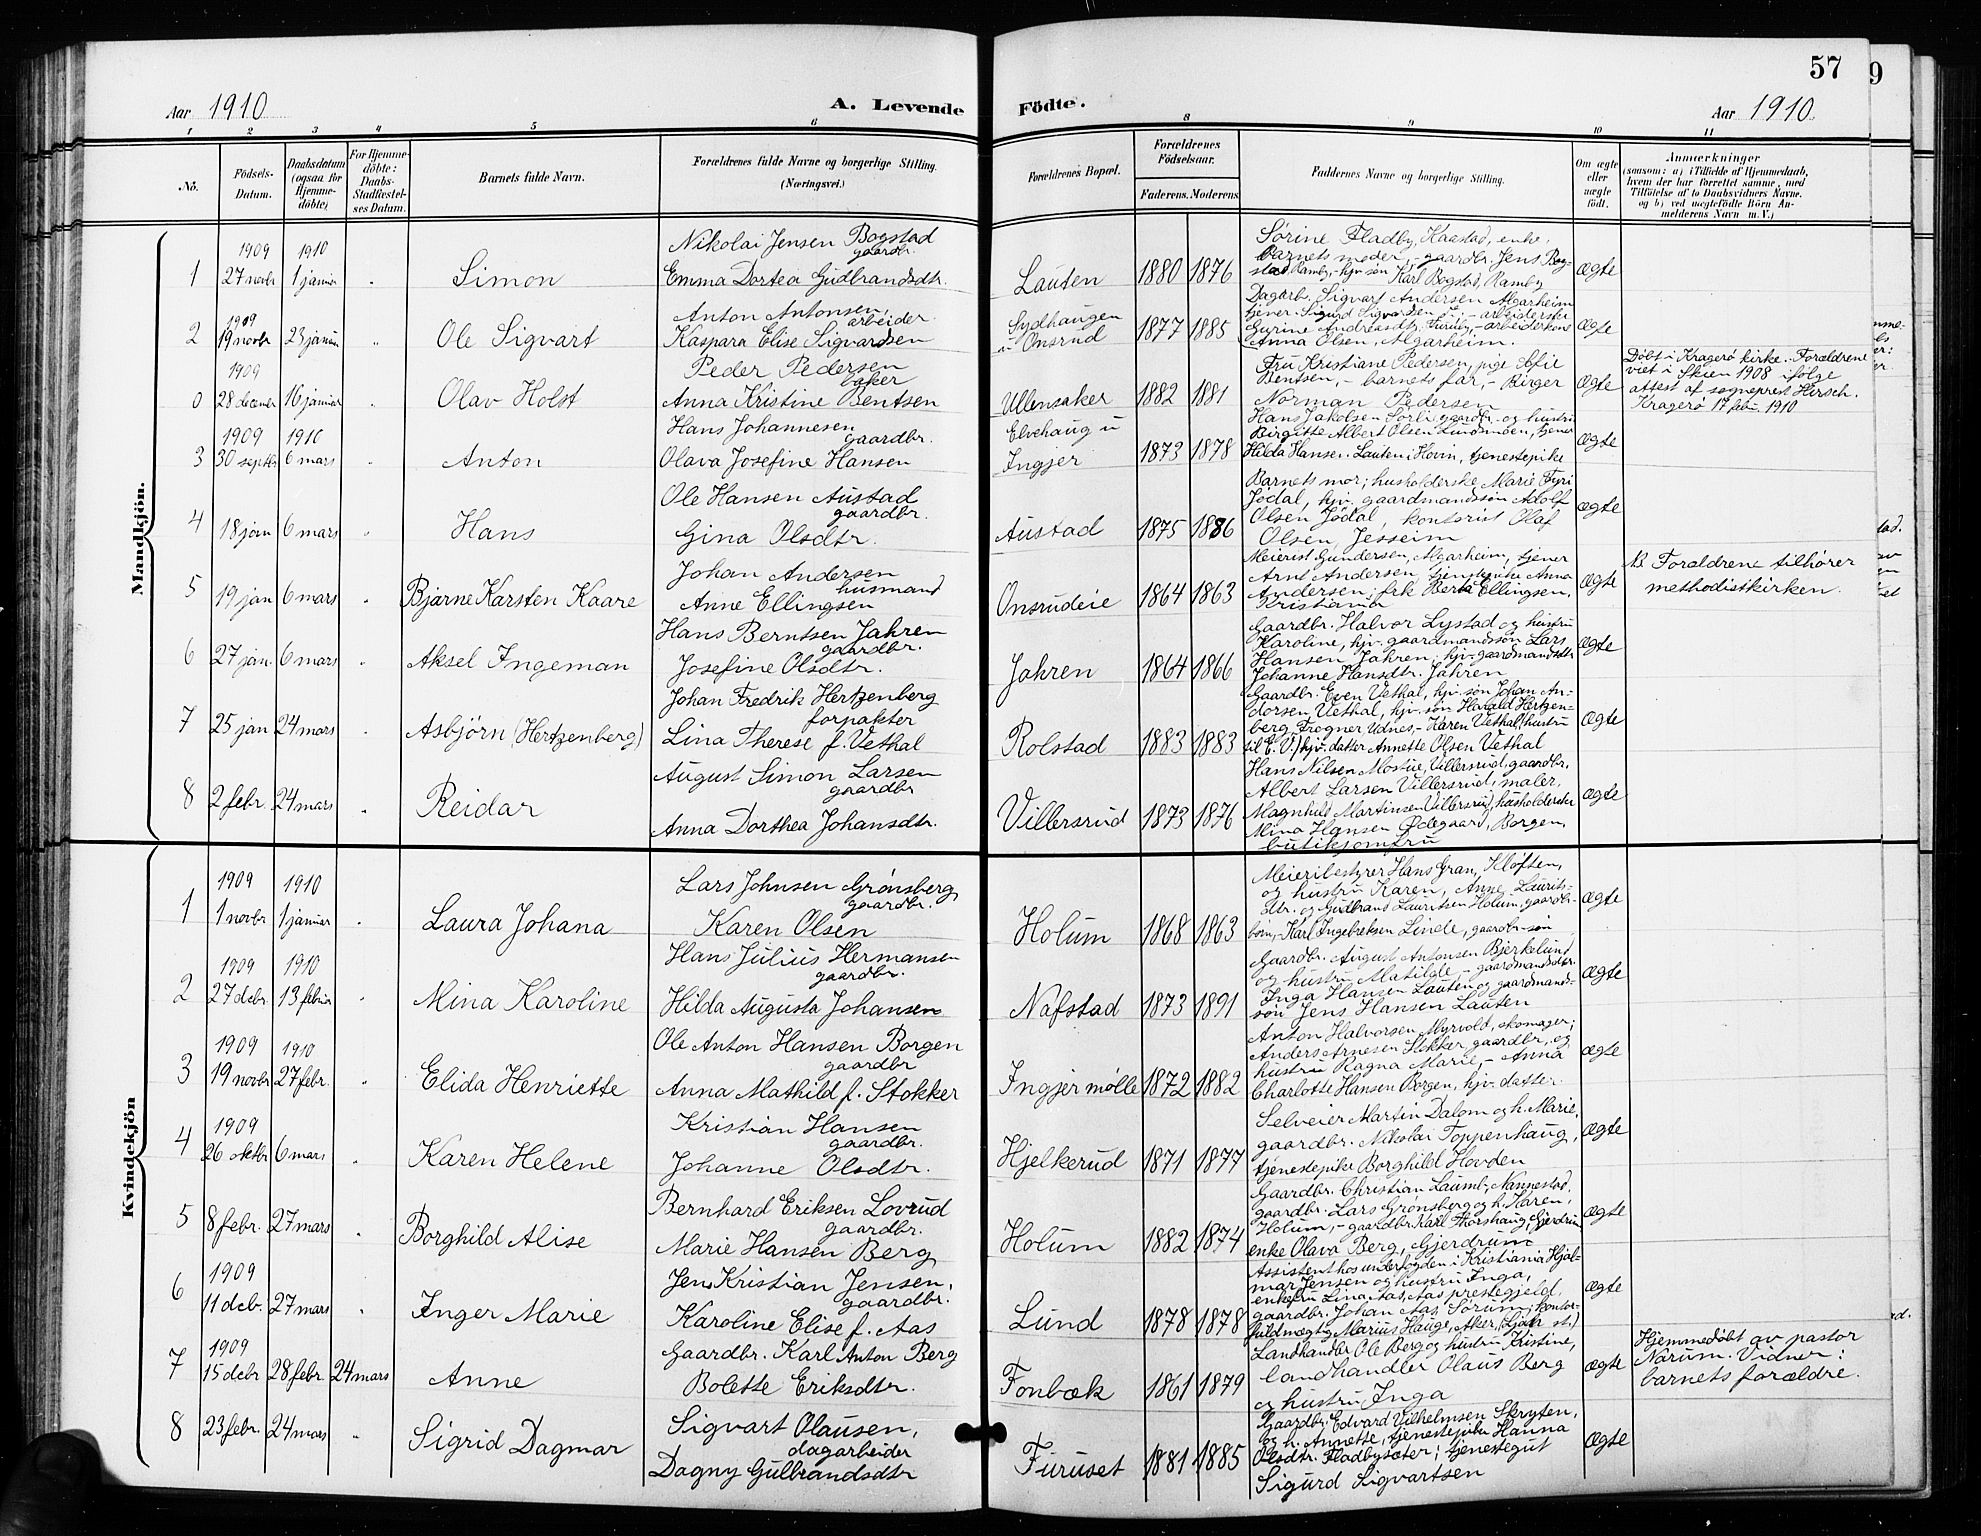 57
9
Aar 1910
A. Levende
Födte.
Aar 1910
1 2 3 4 5 6 8 9 10 11
No.
Födsels-Datum.
Daabsdatum (ogsaa for Hjemme-döbte)
For Hjemme-döbte: Daabs-Stadfæstelses Datum.
Barnets fulde Navn.
Forældrenes fulde Navne og borgerlige Stilling.
(Næringsvei.)
Forældrenes Bopæl.
Forældrenes Födselsaar.
Faderens. Moderens
Faddernes Navne og borgerlige Stilling.
Om ægte eller uægte födt.
Anmærkninger
(saasom: a) i Tilfælde af Hjemmedaab,
hvem der har forrettet samme, med
Tilföielse af to Daabsvidners Navne.
og b) ved uægtefödte Börn An-
melderens Navn m. V.)
Mandkjön.
1 1909 27 novbr 1910 1 januar
Simon
Nikolai Jensen Bogstad
gaardbr.
Emma Dortea Gudbrandsdtr.
Lauten 1880 1876
Sørine Fladby, Kaastad, enke,
barnets moder, - gaardbr. Jens Bog-
stad, Ramby, - hjv. søn Karl Bogstad, Ramby
Ægte
2 1909 19 novbr 23 januar
Ole Sigvart
Anton Antonsen,
arbeider
Kaspara Elise Sigvardsen
Sydhaugen
u. Onsrud 1877 1885
Dagarb. Sigvart Andersen Algarheim
tjener Sigurd Sigvardsen - arbeiderske
Gurine Andreasdtr. - arbeiderkone
Anna Olsen, Algarheim.
Ægte
0 1909 28 decemr 16 januar
Olav Holst
Peder Pedersen
baker
Anna Kristine Bentsen
Ullensaker 1882 1881
Fru Kristiane Pedersen, pige Sofie
Bentsen, - barnets far, - Birger
Norman Pedersen
Ægte
Døbt i Kragerø kirke. Forældrene
viet i Skien 1908 ifølge
attest af sogneprest Hirsch.
Kragerø 17 febr. 1910
3 1909 30 septbr 1910 6 mars
Anton
Hans Johannesen
gaardbr.
Olava Josefine Hansen
Elvehaug u
Ingjer 1873 1878
Hans Jakobsen Sørli gaardbr. og hustru
Birgitte Albert Olsen Lundsmoen, tjener
Hilda Hansen. Lauten i Hovin, tjenestepike
Ægte
4 18 jan 6 mars
Hans
Ole Hansen Austad
gaardbr.
Gina Olsdtr.
Austad 1875 1886
Barnets mor; husholderske Marie Fyri
Jødal, hjv. gaardmandssøn Adolf
Olsen Jødal, kontorist Olaf
Olsen, Jesseim
Ægte
5 19 jan 6 mars
Bjarne Karsten Kaare
Johan Andersen
husmand
Anne Ellingsen
Onsrudeie 1864 1863
Meierist Gundersen, Algarheim, tjener
Arnt Andersen, tjenestepike Anna
Andersen, frk Berta Ellingsen,
Kristiania
Ægte
NB Forældrene tilhører
methodistkirken.
6 27 jan. 6 mars
Aksel Ingeman
Hans Berntsen Jahren
gaardbr.
Josefine Olsdtr.
Jahren 1864 1866
Gaardbr. Halvor Lystad og hustru
Karoline, hjv. gaardmandssøn Lars
Hansen Jahren, hjv. gaardmandsdtr
Johanne Hansdtr. Jahren
Ægte
7 25 jan 24 mars
Asbjørn (Hertzenberg)
Johan Fredrik Hertzenberg
forpakter
Lina Therese f. Vethal
Rolstad 1883 1883
Gaardbr. Even Vethal, hjv. søn Johan An-
dersen Vethal, hjv. søn Harald Hertzen-
berg, Frogner Udnes, - Karen Vethal (hustru
til E. V.) hjv. datter Annette Olsen Vethal
Ægte
8 2 febr. 24 mars
Reidar
August Simon Larsen
gaardbr
Anna Dorthea Johansdtr.
Villersrud 1873 1876
Hans Nilsen Mostue, Villersrud, gaardbr.
Albert Larsen Villersrud, maler,
Magnhild Martinsen Villersrud, husholderske
Mina Hansen Ødegaard, Borgen,
butiksjomfru
Ægte
Kvindekjön
1 1909 1 novbr 1910 1 januar
Laura Johana
Lars Johnsen Grønsberg
gaardbr.
Karen Olsen
Holum 1868 1863
Meieribestyrer Hans Gran, Kløften,
og hustru Karen, Anne Laurits-
dtr. og Gudbrand Lauritsen Holum, gaardbr-
børn, Karl Ingebretsen Linde, gaardbr-søn
Ægte
2 1909 27 decbr. 1910 13 februar
Mina Karoline
Hans Julius Hermansen
gaardbr.
Hilda Augusta Johansen
Nafstad 1873 1891
Gaardbr. August Antonsen Bjerkelund
og hustru Matilde, - gaardmandsdtr.
Inga Hansen Lauten og gaardmands-
søn Jens Hansen Lauten
Ægte
3 1909 19 novbr 1910 27 febr.
Elida Henriette
Ole Anton Hansen Borgen
gaardbr
Anna Mathild f. Stokker
Ingjer mølle 1872 1882
Anton Halvorsen Myrvold, skomager;
Anders Arnesen Stokker, gaardbr. og
hustru Ragna Marie, - Anna
Charlotte Hansen Borgen, hjv. datter
Ægte
4 1909 26 oktbr 6 mars
Karen Helene
Kristian Hansen
gaardbr.
Johanne Olsdtr.
Hjelkerud 1871 1877
Selveier Martin Dalom og h. Marie,
gaardbr. Nikolai Toppenhaug,
tjenestepike Borghild Hovden
Ægte
5 8 febr. 27 mars
Borghild Alise
Bernhard Eriksen Lovrud
gaardbr.
Marie Hansen Berg
Holum 1882 1874
Gaardbr. Christian Laumb, Nannestad,
gaardbr. Lars Grønsberg og h. Karen,
Holum, - gaardbr. Karl Thorshaug, Gjerdrum
enke Olava Berg, Gjerdrum
Ægte
6 1909 11 decb. 27 mars
Inger Marie
Jens Kristian Jensen,
gaardbr.
Karoline Elise f. Aas
Lund 1878 1878
Assistent hos underfogden i Kristiania Hjal-
mar Jensen og hustru Inga,
enkefru Lina Aas, Aas prestegjeld,
gaardbr. Johan Aas, Sørum, kontor-
fuldmægtig Marius Hauge, Aker, (Ljan st.)
Ægte
7 1909 15 decbr 28 febr. 24 mars
Anne
Gaardbr. Karl Anton Berg
Bolette Eriksdtr.
Fonbæk 1861 1879
Landhandler Ole Berg og hustru Kristine,
landhandler Olaus Berg
og hustru Inga
Ægte
Hjemmedøbt av pastor
Narum. Vidner:
barnets forældre.
8 23 febr. 24 mars
Sigrid Dagmar
Sigvart Olausen,
dagarbeider
Dagny Gulbrandsdtr
Furuset 1881 1885
Gaardbr. Edvard Vilhelmsen Skryten,
og h. Annette, tjenestepike Hanna
Olsdtr. Fladbysæter; tjenestegut
Sigurd Sigvartsen
Ægte